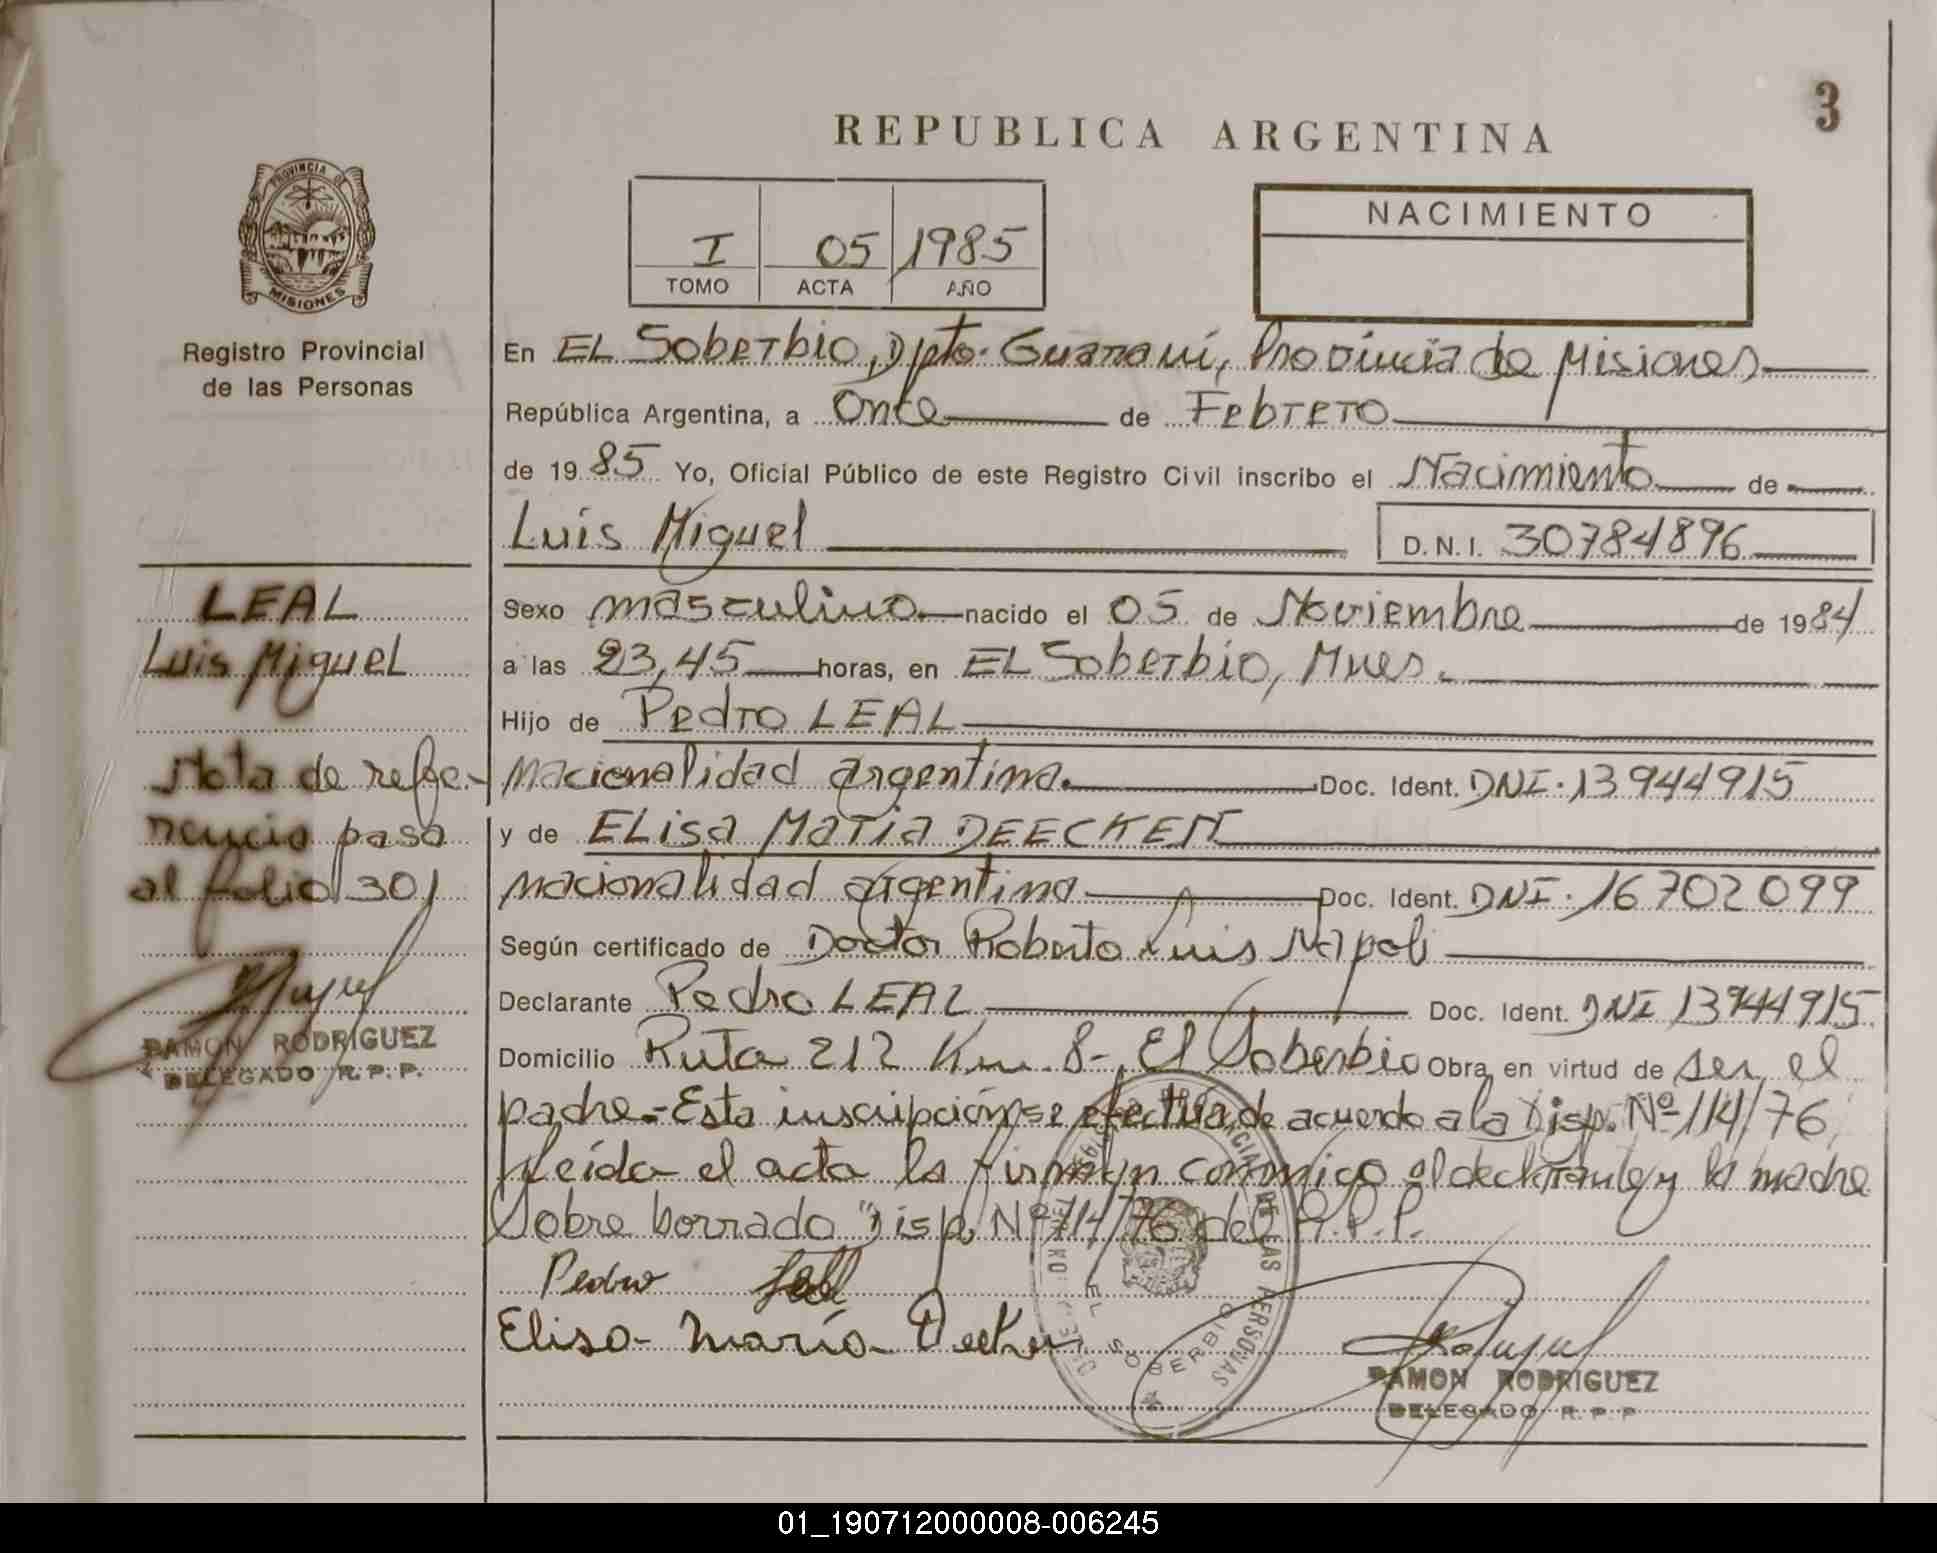 3
REPUBLICA ARGENTINA
PROVINCIA DE
MISIONES
Registro Provincial
de las Personas
I 05 1985
TOMO ACTA AÑO
NACIMIENTO
En EL Soberbio, Dpto. Guaraní, Provincia de Misiones
República Argentina, a Once de Febrero
de 1985 Yo, Oficial Público de este Registro Civil inscribo el Nacimiento de
Luis Miguel D.N.I. 30784896
LEAL
Luis Miguel
Nota de refe-
rencia pasa
al folio 301
RAMON RODRIGUEZ
DELEGADO R.P.P.
Sexo masculino nacido el 05 de Noviembre de 1984
a las 23,45 horas, en EL Soberbio, Mnes.
Hijo de Pedro LEAL
nacionalidad argentina. Doc. Ident. DNI. 13944915
y de ELisa Maria DEECKEN
nacionalidad argentina Doc. Ident. DNI. 16702099
Según certificado de Doctor Roberto Luis Napoli
Declarante Pedro LEAL Doc. Ident. DNI 13944915
Domicilio Ruta 212 Km. 8-, El Soberbio Obra en virtud de ser el
padre.- Esta inscripción se efectúa de acuerdo a la Disp. Nº 114/76
Leída el acta la firman conmigo el declarante y la madre
Sobre borrado "Disp. Nº 114/76 del R.P.P.
Pedro Leal
Elisa María Decker
EL SOBERBIO
RAMON RODRIGUEZ
DELEGADO R.P.P
01_190712000008-006245